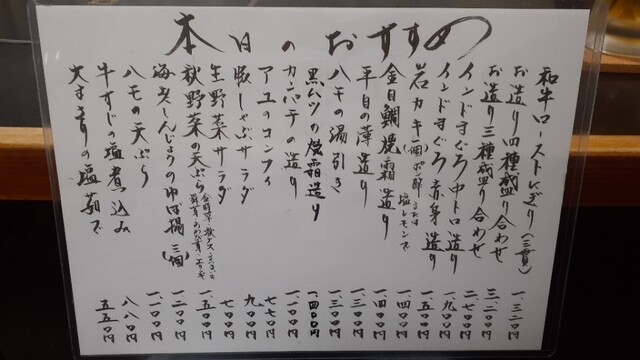 本日のおすすめ
和牛ローストにぎり(三貫) 一、三二〇円
お造り四種盛り合わせ 三、二〇〇円
お造り三種盛り合わせ 二、七〇〇円
インドまぐろ中トロ造り 一、九〇〇円
インドまぐろ赤身造り 一、五〇〇円
岩カキ(一個)ポン酢または塩レモンで 一、四〇〇円
金目鯛焼霜造り 一、四〇〇円
平目の薄造り 一、三〇〇円
ハモの湯引き 一、三〇〇円
黒ムツの焼霜造り 一、四〇〇円
カンパチの造り 一、一〇〇円
アユのコンフィ 七七〇円
豚しゃぶサラダ 九〇〇円
生野菜サラダ 七〇〇円
秋野菜の天ぷら 一、五〇〇円
海老しんじょうのゆば揚(三個) 一、二〇〇円
ハモの天ぷら 一、一〇〇円
牛すじの塩煮込み 八八〇円
大まさりの塩茹で 五五〇円